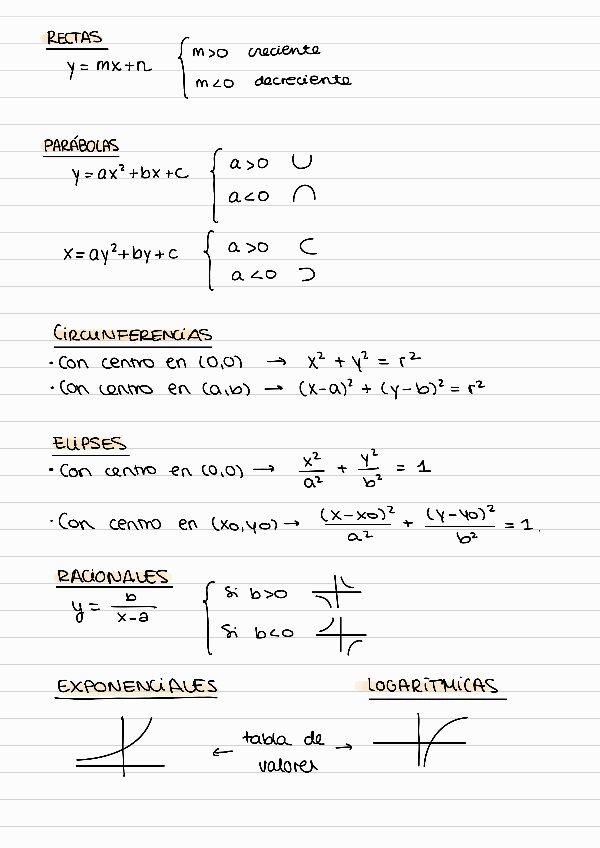 RECTAS
y = mx+n
m>0 creciente
m<0 decreciente
PARÁBOLAS
y=ax²+bx+c
a>0 ∪
a<0 ∩
x=ay²+by+c
a>0 ⊂
a<0 ⊃
CIRCUNFERENCIAS
· Con centro en (0,0) → x² + y² = r²
· Con centro en (a,b) → (x-a)² + (y-b)² = r²
ELIPSES
· Con centro en (0,0) → x²/a² + y²/b² = 1
· Con centro en (x0,y0) → (x-x0)²/a² + (y-y0)²/b² = 1.
RACIONALES
y = b/x-a
Si b>0
Si b<0
EXPONENCIALES
LOGARITMICAS
← tabla de →
valores